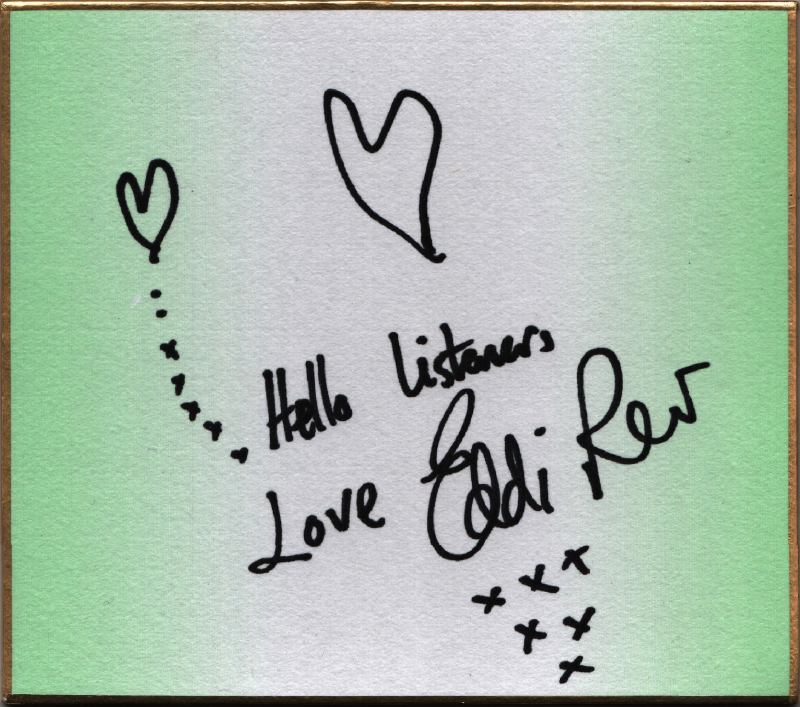 Hello Listeners
Love Eddi Rev
x x x
x x
x